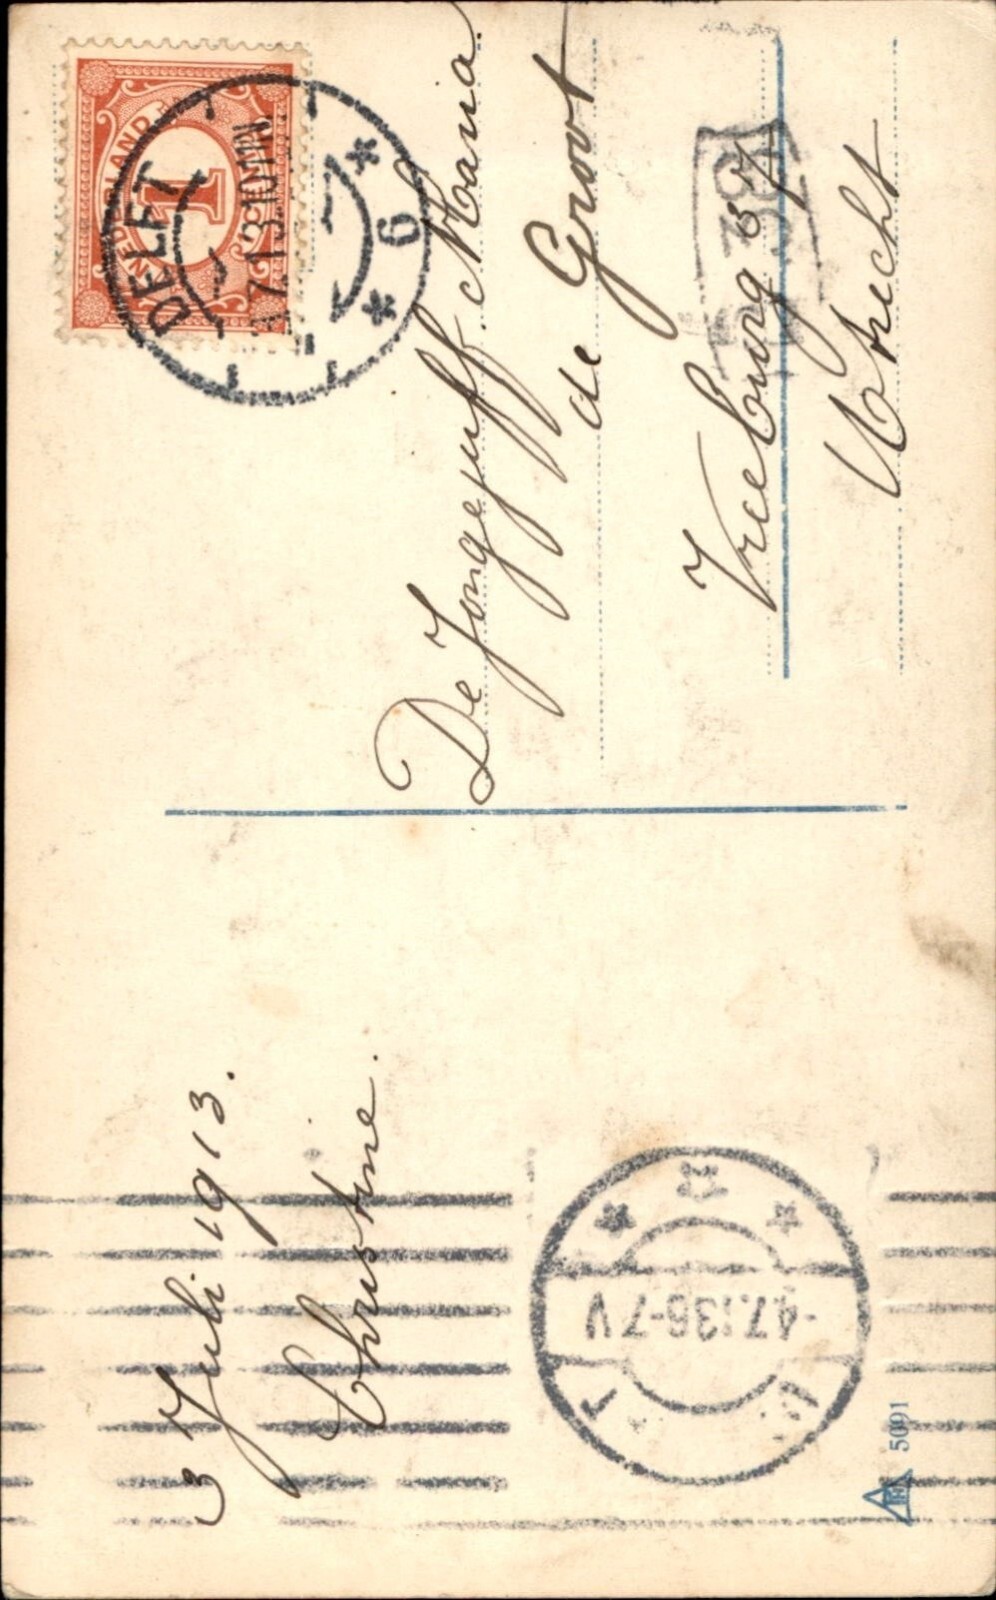 3 Juli 1913.
Christine.
De Jongejuff. Maria
de Groot
Vreeburg 37
Utrecht
NEDERLAND
1
CENT
DELFT
7.13.10
6
-4.7.13 6-7 V
5091